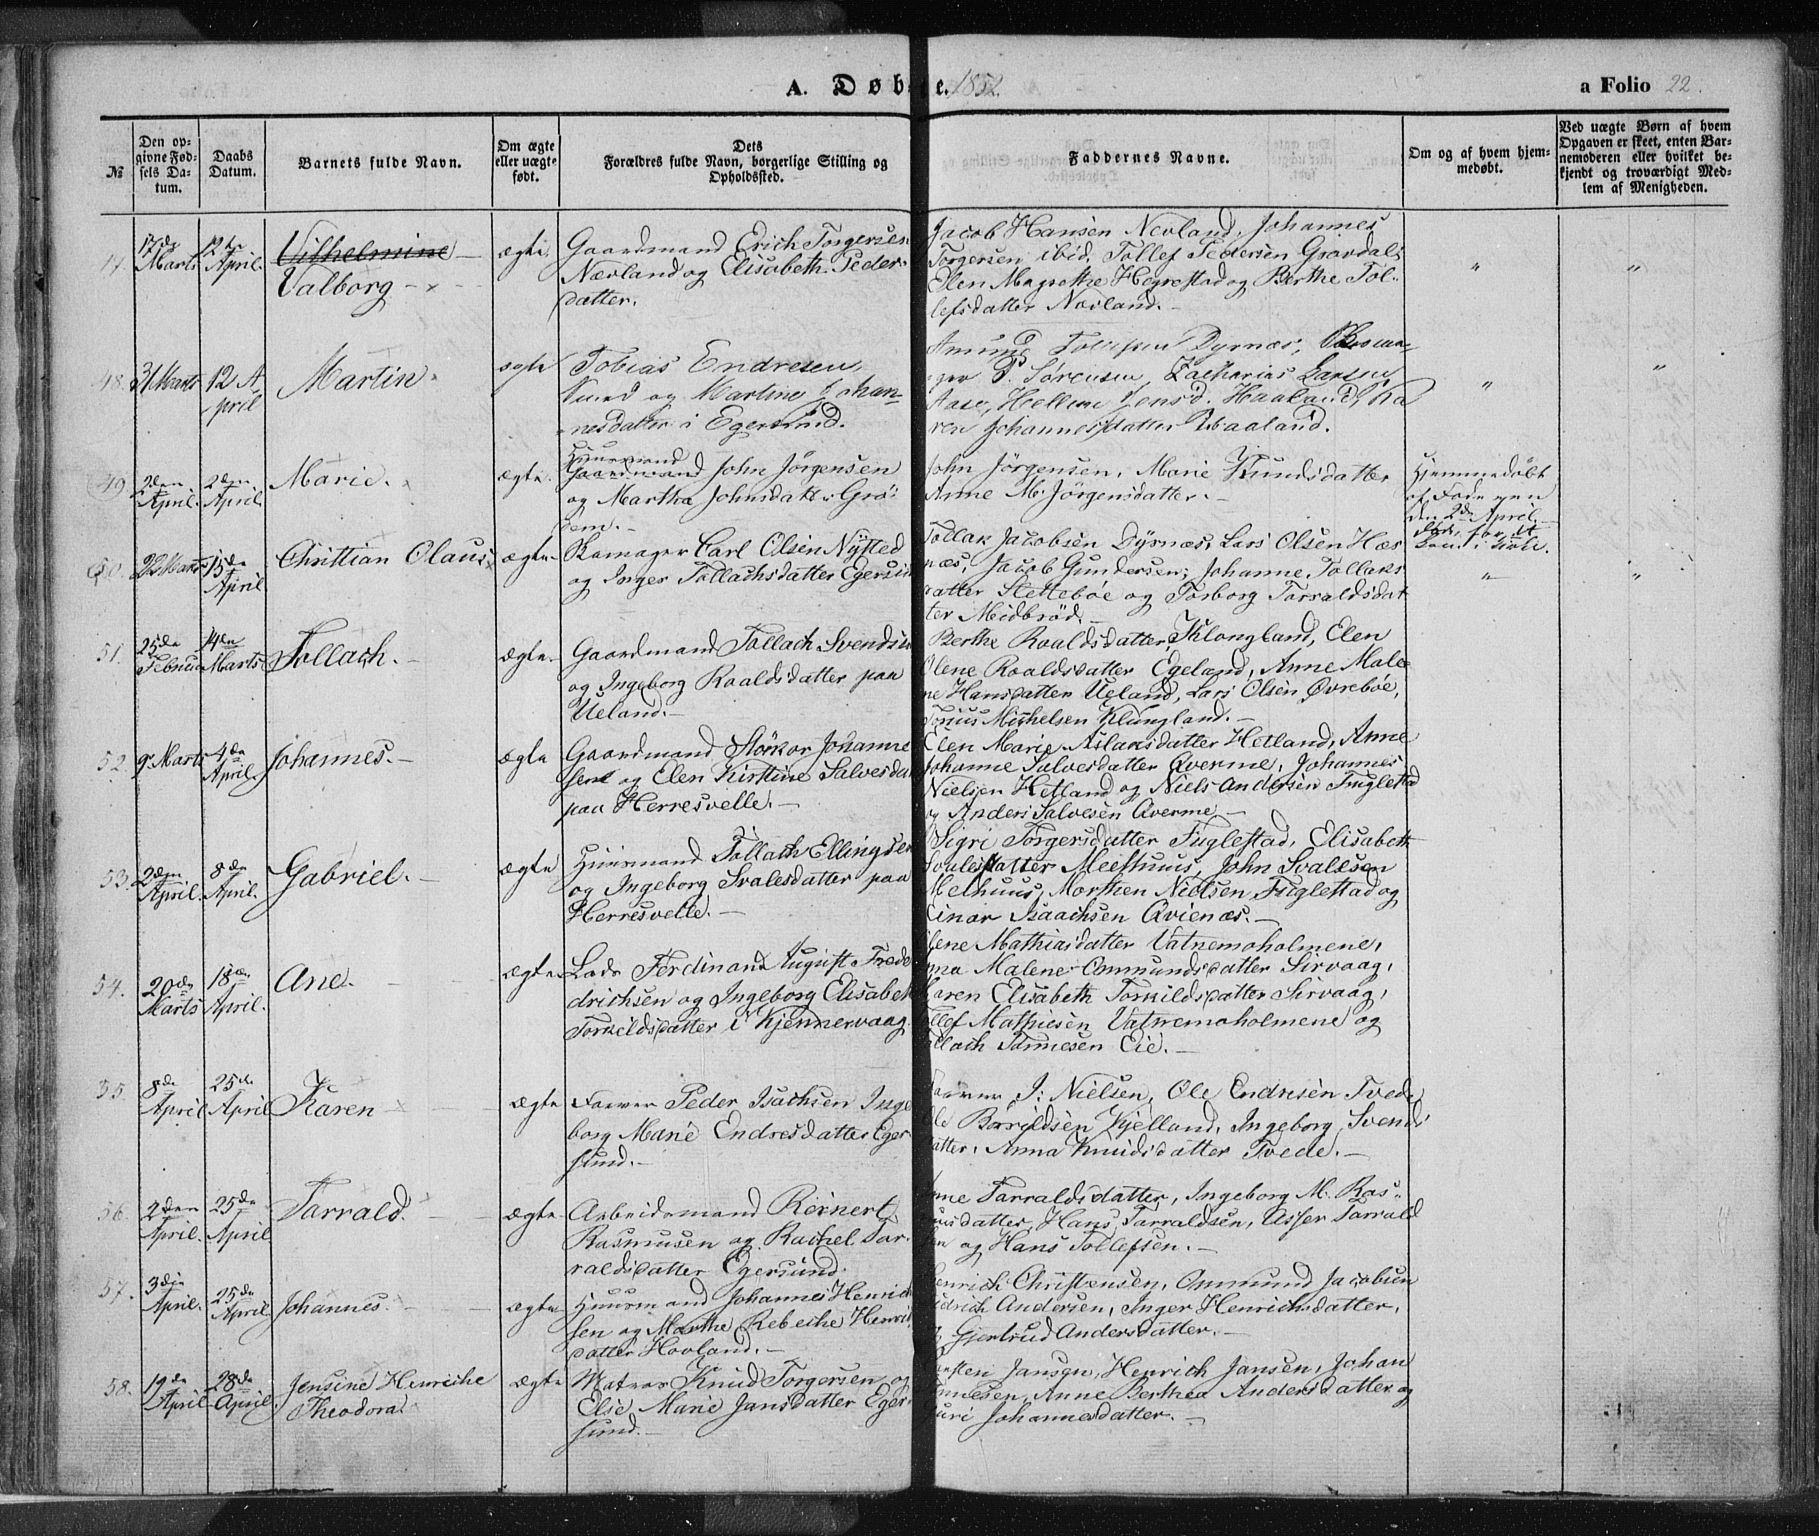 A. Døbte. 1852.
a Folio 22.
№
Den opgivne Fødsels Datum.
Daabs Datum.
Barnets fulde Navn.
Om ægte eller uægte født.
Dets Forældres fulde Navn, borgerlige Stilling og Opholdssted.
Faddernes Navne.
Om og af hvem hjemmedøbt.
Ved uægte Børn af hvem Opgaven er skeet, enten Barnemoderen eller hvilket bekjendt og troværdigt Medlem af Menigheden.
47. 17de Marts 12te April. Vilhelmine Valborg ægte.
Gaardmand Erich Torgersen
Nævland og Elisabeth Peders-
datter.
Jacob Hansen Nevland, Johannes
Torgersen ibid, Tollef Pedersen Gravdal;
Elen Magrethe Hegrestad og Berthe Tol-
lefsdatter Nævland.
48. 31 Marts 12 April Martin. ægte
Tobias Endresen,
og Martine Johan-
nesdatter i Egersund.
Amund Dyrnæs,
P. Sørensen, Zacharias Larsen
Aase, Hellene Jensd. Haaland, Ka
ren Johannesdatter Haaland.
49. 2den April. 2den April. Marie. ægte.
Huusmand
Gaardmand John Jörgensen
og Martha Johnsdatter Grö-
dem.
John Jörgensen, Marie Knudsdatter
Anne M. Jörgensdatter.
Hjemmedøbt
af Faderen
den 2den April.
50. 22 Marts 15de April Christian Olaus ægte
Skomager Carl Olsen Nysted
og Inger Tollachsdatter Egersund
Tollak Jacobsen Dyrnæs, Lars Olsen Hæs
næs, Jacob Gundersen; Johanne Tollaks
datter Slettebøe og Torborg Torraldsdat
ter Midbrød.
51. 25de Februar 14den Marts Tollach. ægte
Gaardmand Tollach Svendsen
og Ingeborg Roaldsdatter paa
Ueland.
Berthe Roaldsdatter Klongland, Elen
Olene Roaldsdatter Egeland, Anne Male
ne Hansdatter Ueland, Lars Olsen Øvrebøe,
Tønius Michelsen Klungland.
52. 9 Marts 4de April. Johannes. ægte
Gaardmand Störkor Johanne
sen og Elen Kirstine Salvesdat
paa Herresvelle.
Elen Marie Aslaksdatter Hetland, Anne
Johanne Salvesdatter Qverme, Johannes
Nielsen Hetland og Niels Andersen Fuglestad
og Anders Salvesen Qverme
53. 2den April. 8de April. Gabriel. ægte
Huusmand Tollach Ellingsen
og Ingeborg Svalesdatter paa
Herresvelle.
Sigri Torgersdatter Fuglestad, Elisabeth
Svalesdatter Meelhuus, John Svalesen
Melhuus, Morthen Nielsen Fuglestad og
Einar Isaachsen Qvienæs.
54. 20de Marts 18de April. Ane. ægte
Lods Ferdinand August Frede
drichsen og Ingeborg Elisabet
Torkildsdatter i Kjennervaag.
lene Mathiasdatter Vatnemoholmene,
nna Malene Ommundsdatter Sirvaag,
Karen Elisabeth Torkildsdatter Sirvaag,
llef Mathiesen Vatnemoholmene og
llach Tønnesen Eie.
55. 8de April 25de April Karen ægte
Farver Peder Isachsen Inge
borg Marie Endresdatter Eger
sund.
Farver J. Nielsen, Ole Endresen Tvede
le Bärildsen Kjelland, Ingeborg Svends
datter, Anna Knudsdatter Tvede.
56. 2den April. 25de April Tarrald. ægte
Arbeidsmand Reinert
Rasmusen og Rachel Tar-
raldsdatter Egersund.
nne Tarraldsdatter, Ingeborg M. Ras-
musdatter, Hans Tarraldsen, Asser Tarrald
sen og Hans Tollefsen.
57. 3die April. 25de April Johannes. ægte
Huusmand Johannes Henrich
sen og Marthe Rebeche Henrik
datter Hovland.
enrich Christensen, Ommund Jacobsen
Didrich Andersen, Inger Henrichsdatter,
og Gjertrud Andersdatter.
58. 19de April 28de April. Jensine Henriche Theodora. ægte
Matros Knud Torgersen og
Elie Marie Jansdatter Eger-
sund.
arsten Jansen, Henrich Jansen, Johan
Tønnesen, Anne Berthea Andersdatter og
Guri Johannesdatter.